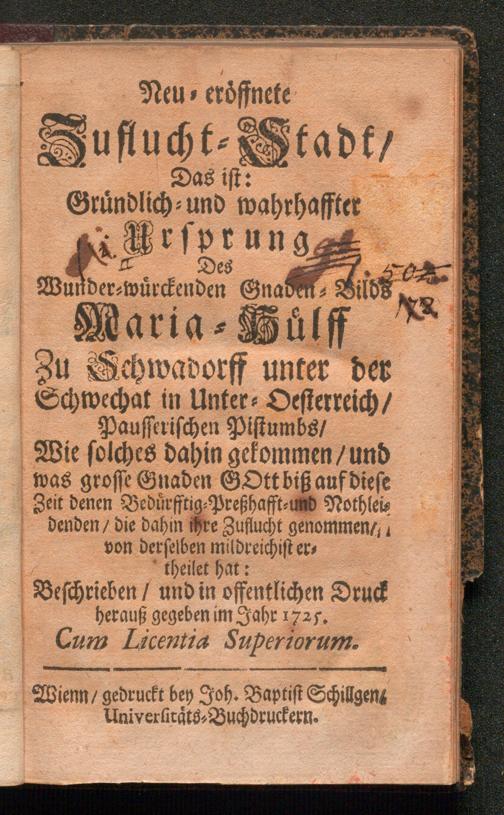 Neu-eröffnete
Zuflucht-Stadt/
Das ist:
Gründlich-und wahrhaffter
Ursprung
Des
Wunder-würckenden Gnaden-Bilds
Maria-Hülff
Zu Schwadorff unter der
Schwechat in Unter-Oesterreich/
Pausserischen Pistumbs/
Wie solches dahin gekommen/und
was grosse Gnaden GOtt biß auf diese
Zeit denen Bedürfftig-Preßhafft-und Nothlei-
denden/die dahin ihre Zuflucht genommen/
von derselben mildreichist er-
theilet hat:
Beschrieben/ und in offentlichen Druck
herauß gegeben im Jahr 1725.
Cum Licentia Superiorum.
Wienn/gedruckt bey Joh. Baptist Schilgen/
Universitäts-Buchdruckern.